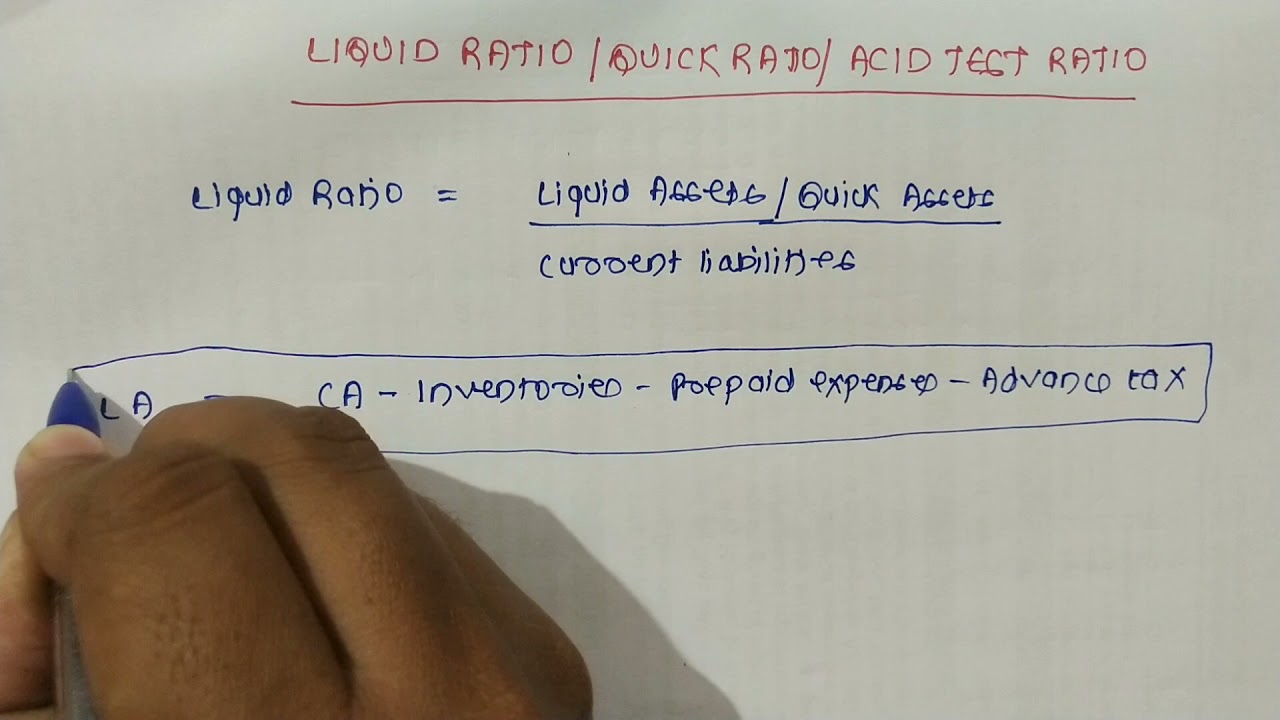 LIQUID RATIO / QUICK RATIO / ACID TEST RATIO
Liquid Ratio = Liquid Assets / Quick Assets
Current liabilities
LA = CA - Inventories - Prepaid expenses - Advance tax